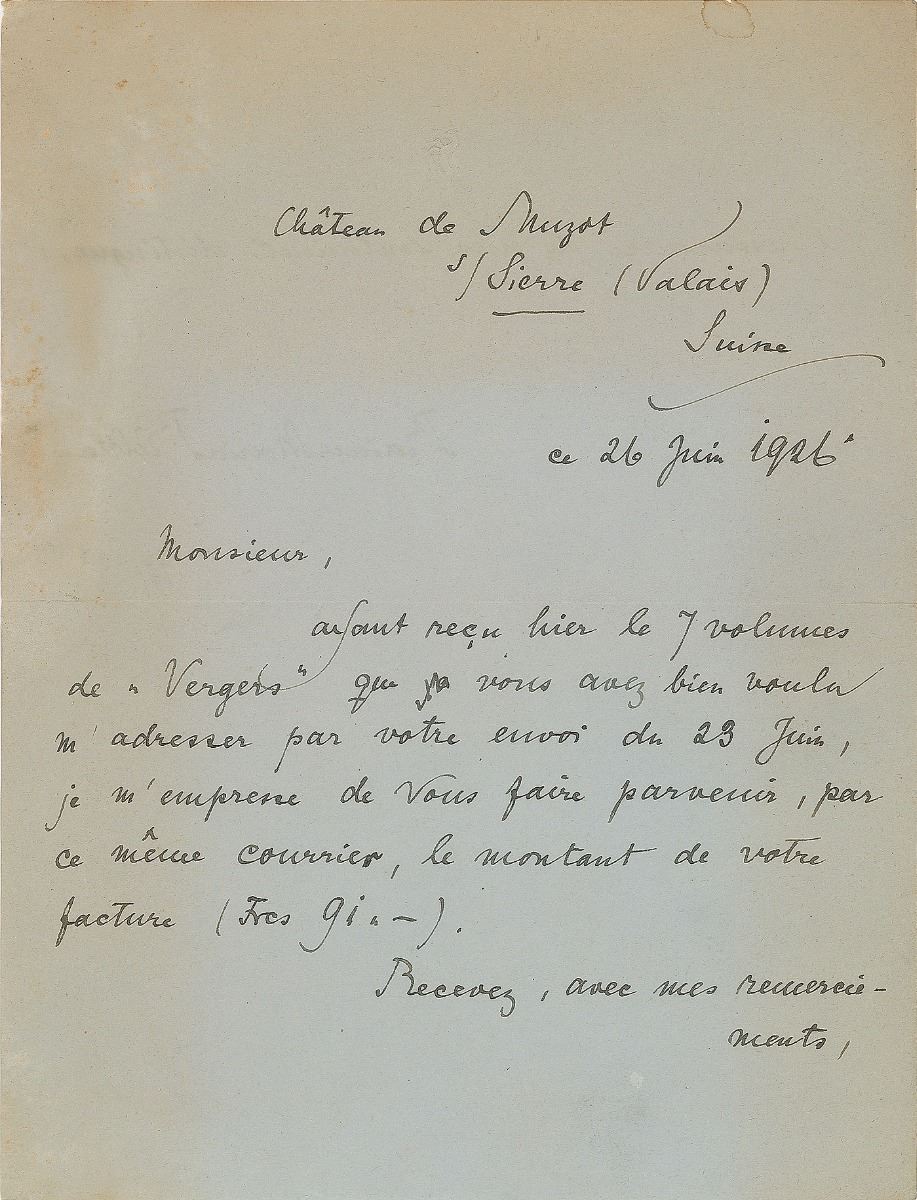 Château de Muzot
s/Sierre (Valais)
Suisse
ce 26 Juin 1926
Monsieur,
ayant reçu hier le 7 volumes
de „Vergers" que vous avez bien voulu
m'adresser par votre envoi du 23 Juin,
je m'empresse de Vous faire parvenir, par
ce même courrier, le montant de votre
facture (Frcs 91.-).
Recevez, avec mes remercie-
ments,